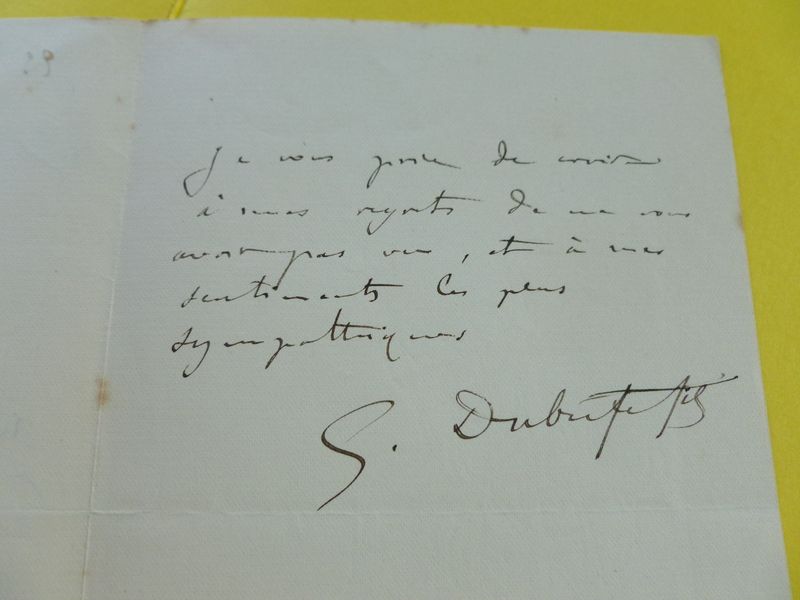 29
Je vous prie de croire
à mes regrets de ne vous
avoir pas vu, et à mes
sentiments les plus
sympathiques
G. Dubufe fils